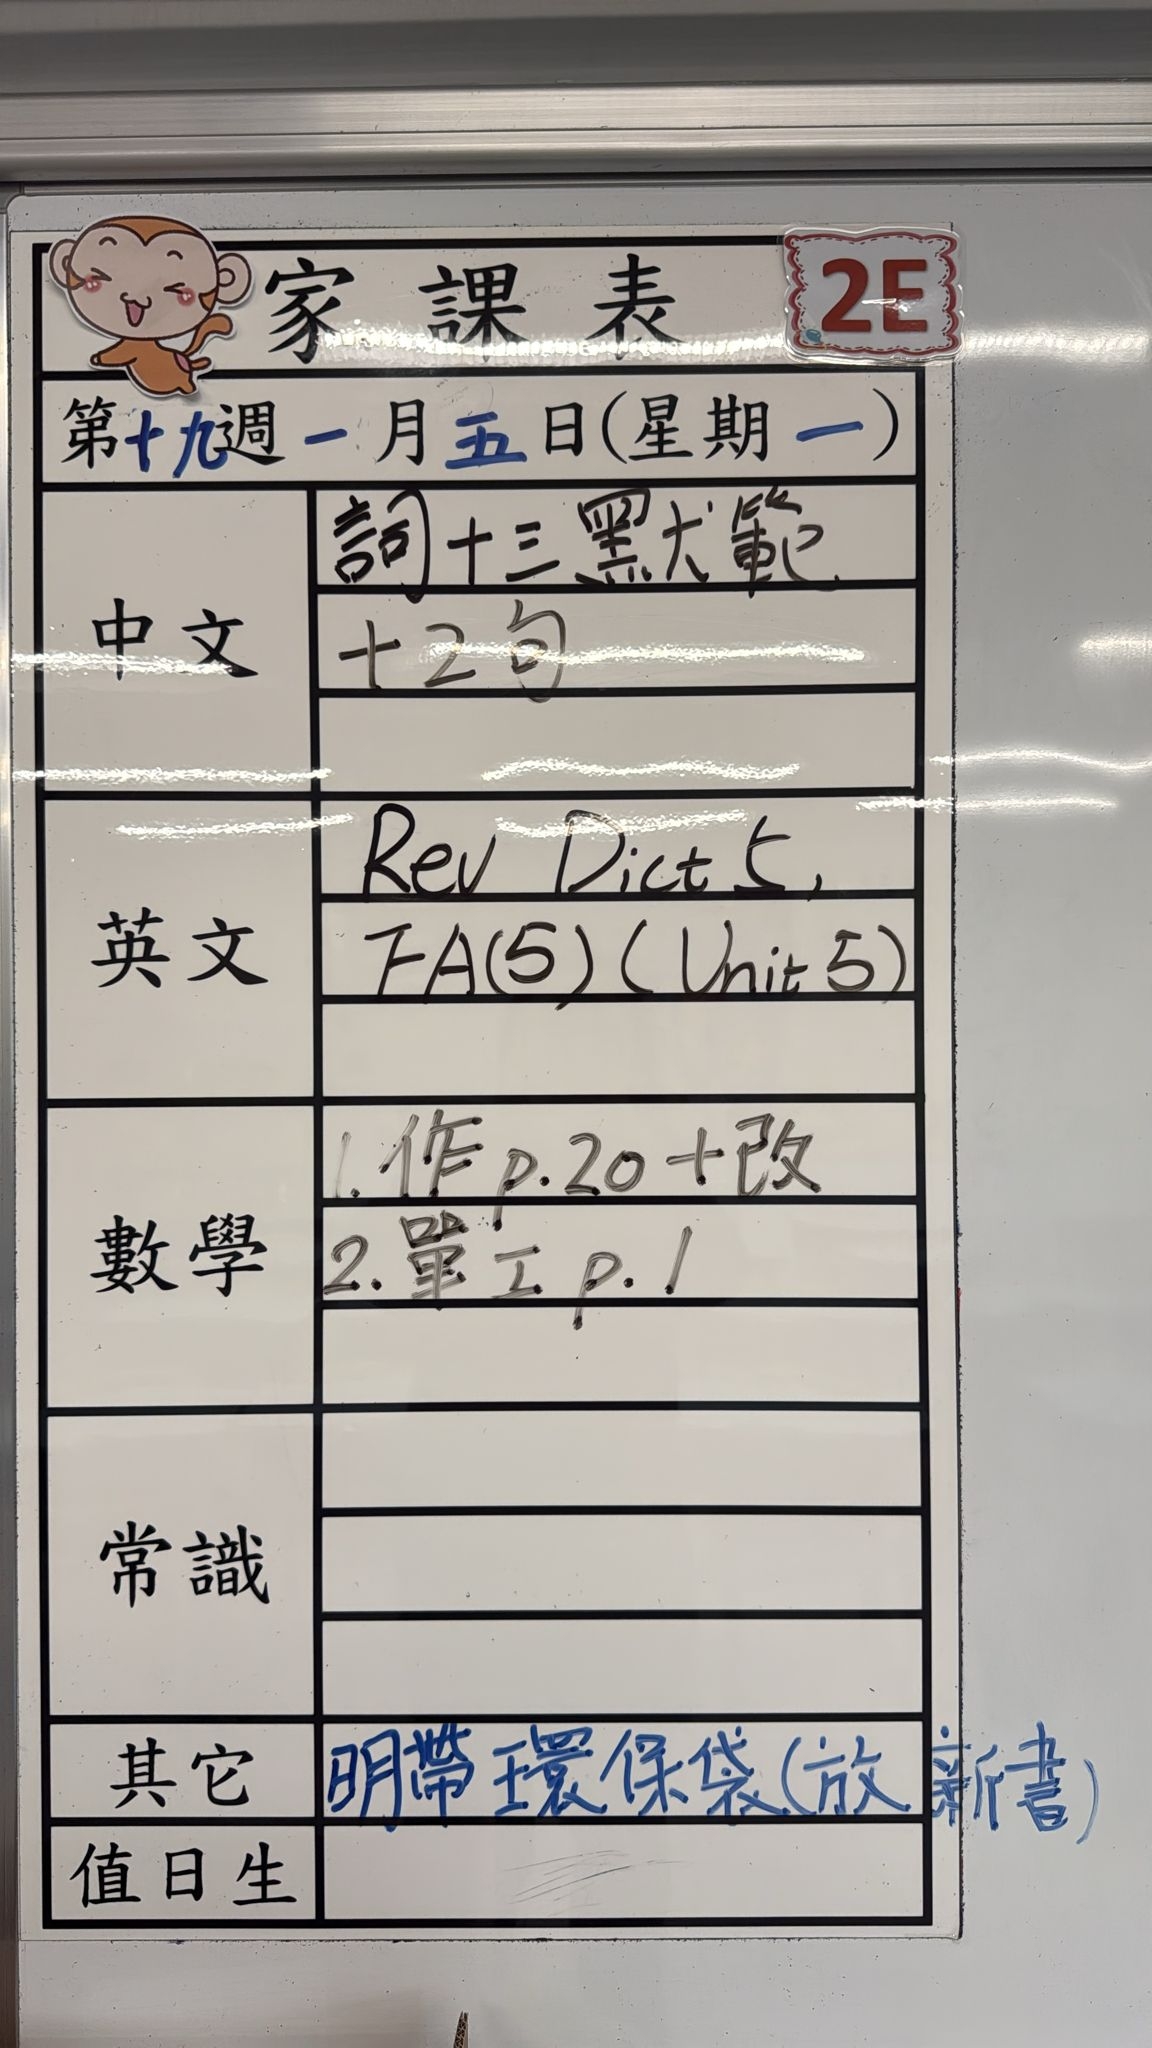 家課表 2E
第十九週一月五日(星期一)
中文
詞十三黑犬範
+2句
英文
Rev Dict 5,
FA(5) (Unit 5)
數學
1. 作 p.20 + 改
2. 單工 p.1
常識
其它
明帶環保袋(放新書)
值日生